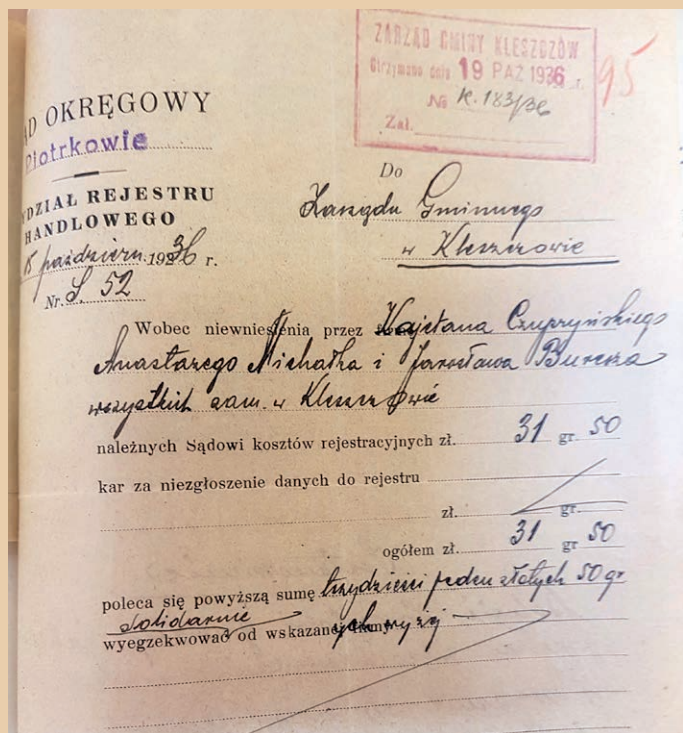 ZARZĄD GMINY KLESZCZÓW
Otrzymano dnia 19 PAŹ 1936 r.
№ K. 183/36
Zał.
95
D OKRĘGOWY
Piotrkowie
DZIAŁ REJESTRU
HANDLOWEGO
15 październ. 1936 r.
Nr. S. 52
Do
Zarządu Gminnego
w Kleszczowie
Wobec niewniesienia przez Kajetana Czupryńskiego
Anastazego Michałka i Jarosława
wszystkich zam. w Kleszczowie
należnych Sądowi kosztów rejestracyjnych zł. 31 gr. 50
kar za niezgłoszenie danych do rejestru
zł. gr.
ogółem zł. 31 gr 50
poleca się powyższą sumę trzydzieści jeden złotych 50 gr
solidarnie
wyegzekwować od wskazanych wyżej